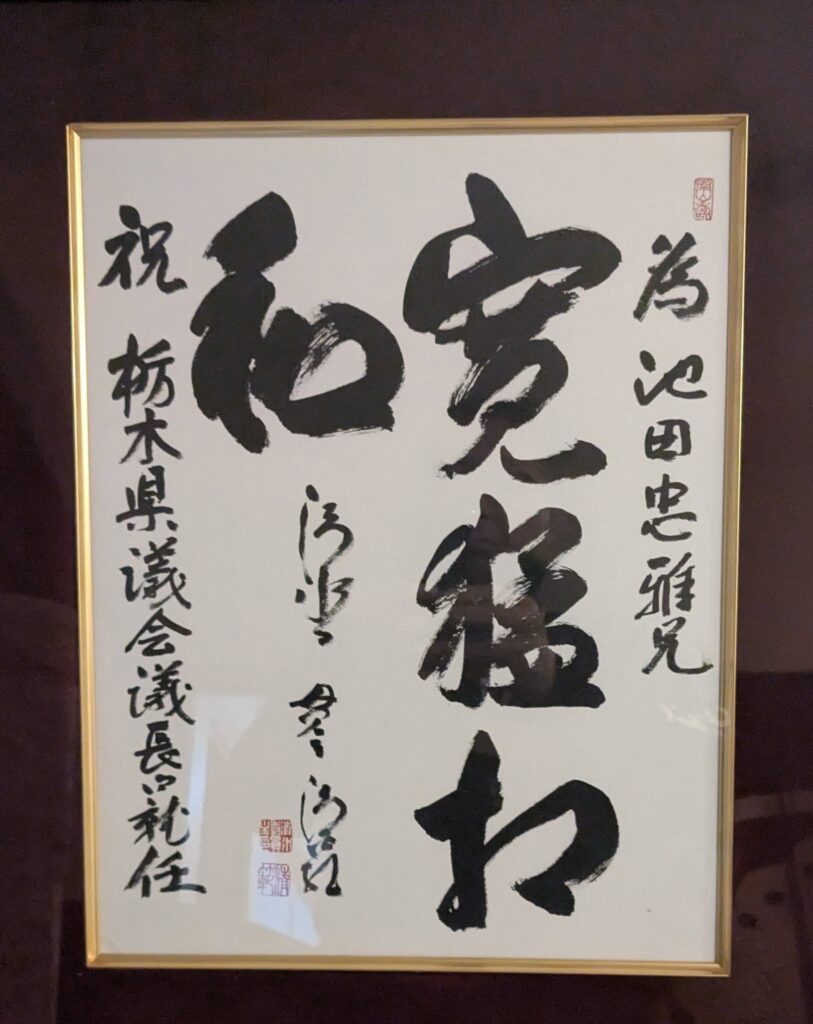 為 池田忠雅兄
寛猛相
和
祝 栃木県議会議長ご就任